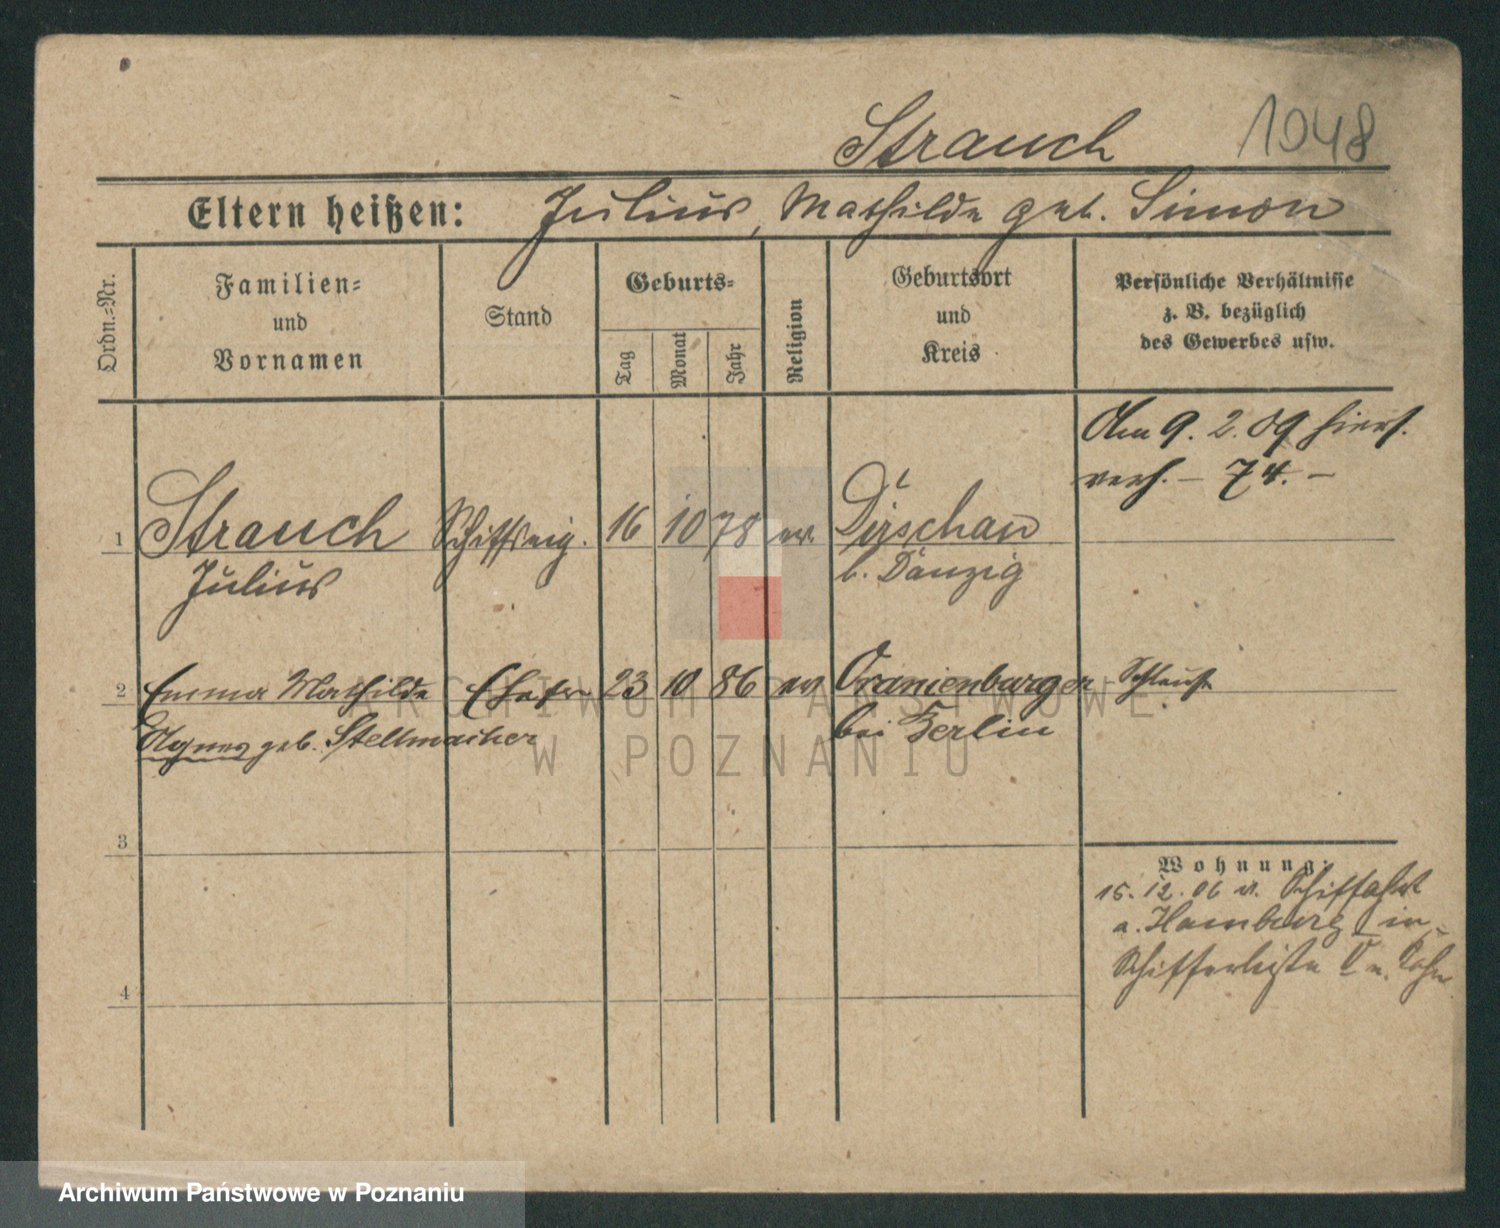 Strauch 1048
Eltern heißen: Julius, Mathilde geb. Simon
Ordn.-Nr.
Familien-
und
Vornamen
Stand
Geburts-
Tag
Monat
Jahr
Religion
Geburtsort
und
Kreis
Persönliche Verhältnisse
z. B. bezüglich
des Gewerbes usw.
Am 9. 2. 09 hiers.
verh. – 74. –
1 Strauch Schiffseig. 16 10 78 ev. Dirschau
Julius b. Danzig
2 Emma Mathilde Ehefr 23 10 86 ev Oranienburger Schleuse
Agnes geb. Stellmacher bei Berlin
3
Wohnung:
15. 12. 06 v. Schiffahrt
a. Hamburg in
Schifferliste
4
ARCHIWUM PAŃSTWOWE
W POZNANIU
Archiwum Państwowe w Poznaniu